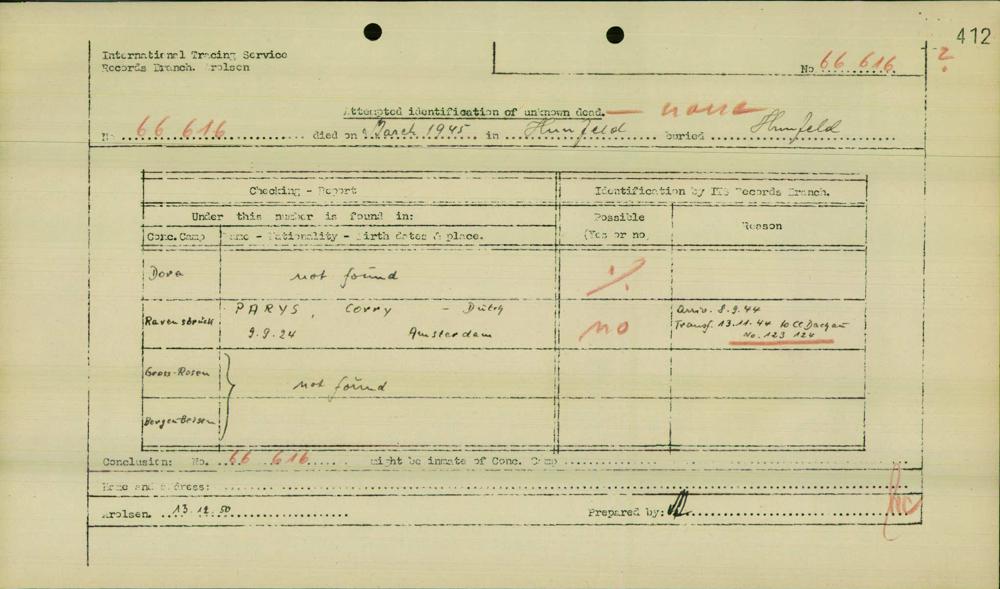 412
International Tracing Service
Records Branch. Arolsen
No 66 616 ?
Attempted identification of unknown dead. — none
No. 66 616 died on March 1945 in Hünfeld buried Hünfeld
Checking - Report
Identification by ITS Records Branch.
Under this number is found in:
Possible
(Yes or no)
Reason
Conc.Camp
Name - Nationality - Birth dates & place.
Dora
not found
%
Ravensbrück
PARYS, Corry - Dutch
9.9.24 Amsterdam
no
arriv. 8.9.44
Transf. 13.11.44 to CC Dachau
No. 123 124
Gross-Rosen
not found
Bergen Belsen
Conclusion: No. 66 616 might be inmate of Conc. Camp
Name and address:
Arolsen. 13.12.50
Prepared by: